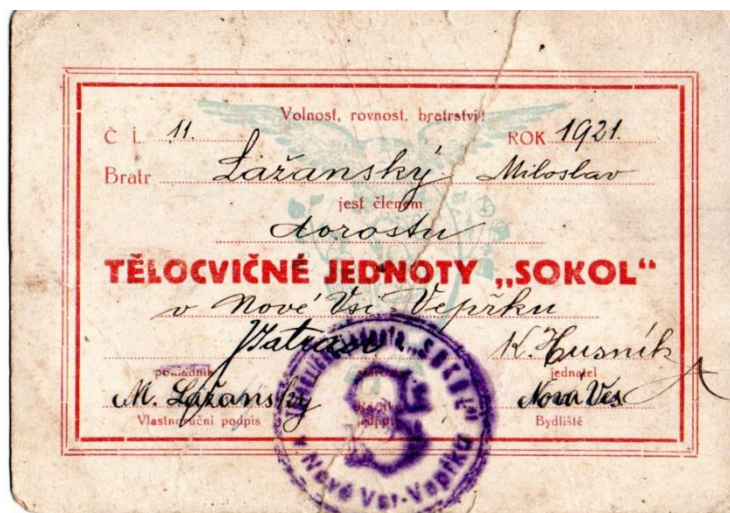 Volnost, rovnost, bratrství!
Č. L. 11. ROK 1921.
Bratr Lažanský Miloslav
jest členem
dorostu
TĚLOCVIČNÉ JEDNOTY „SOKOL“
v Nové Vsi Vepřku
K. Husník
pokladník jednatel
M. Lažanský Nová Ves
Vlastnoruční podpis Bydliště
„SOKOL“
v Nové Vsi-Vepřku